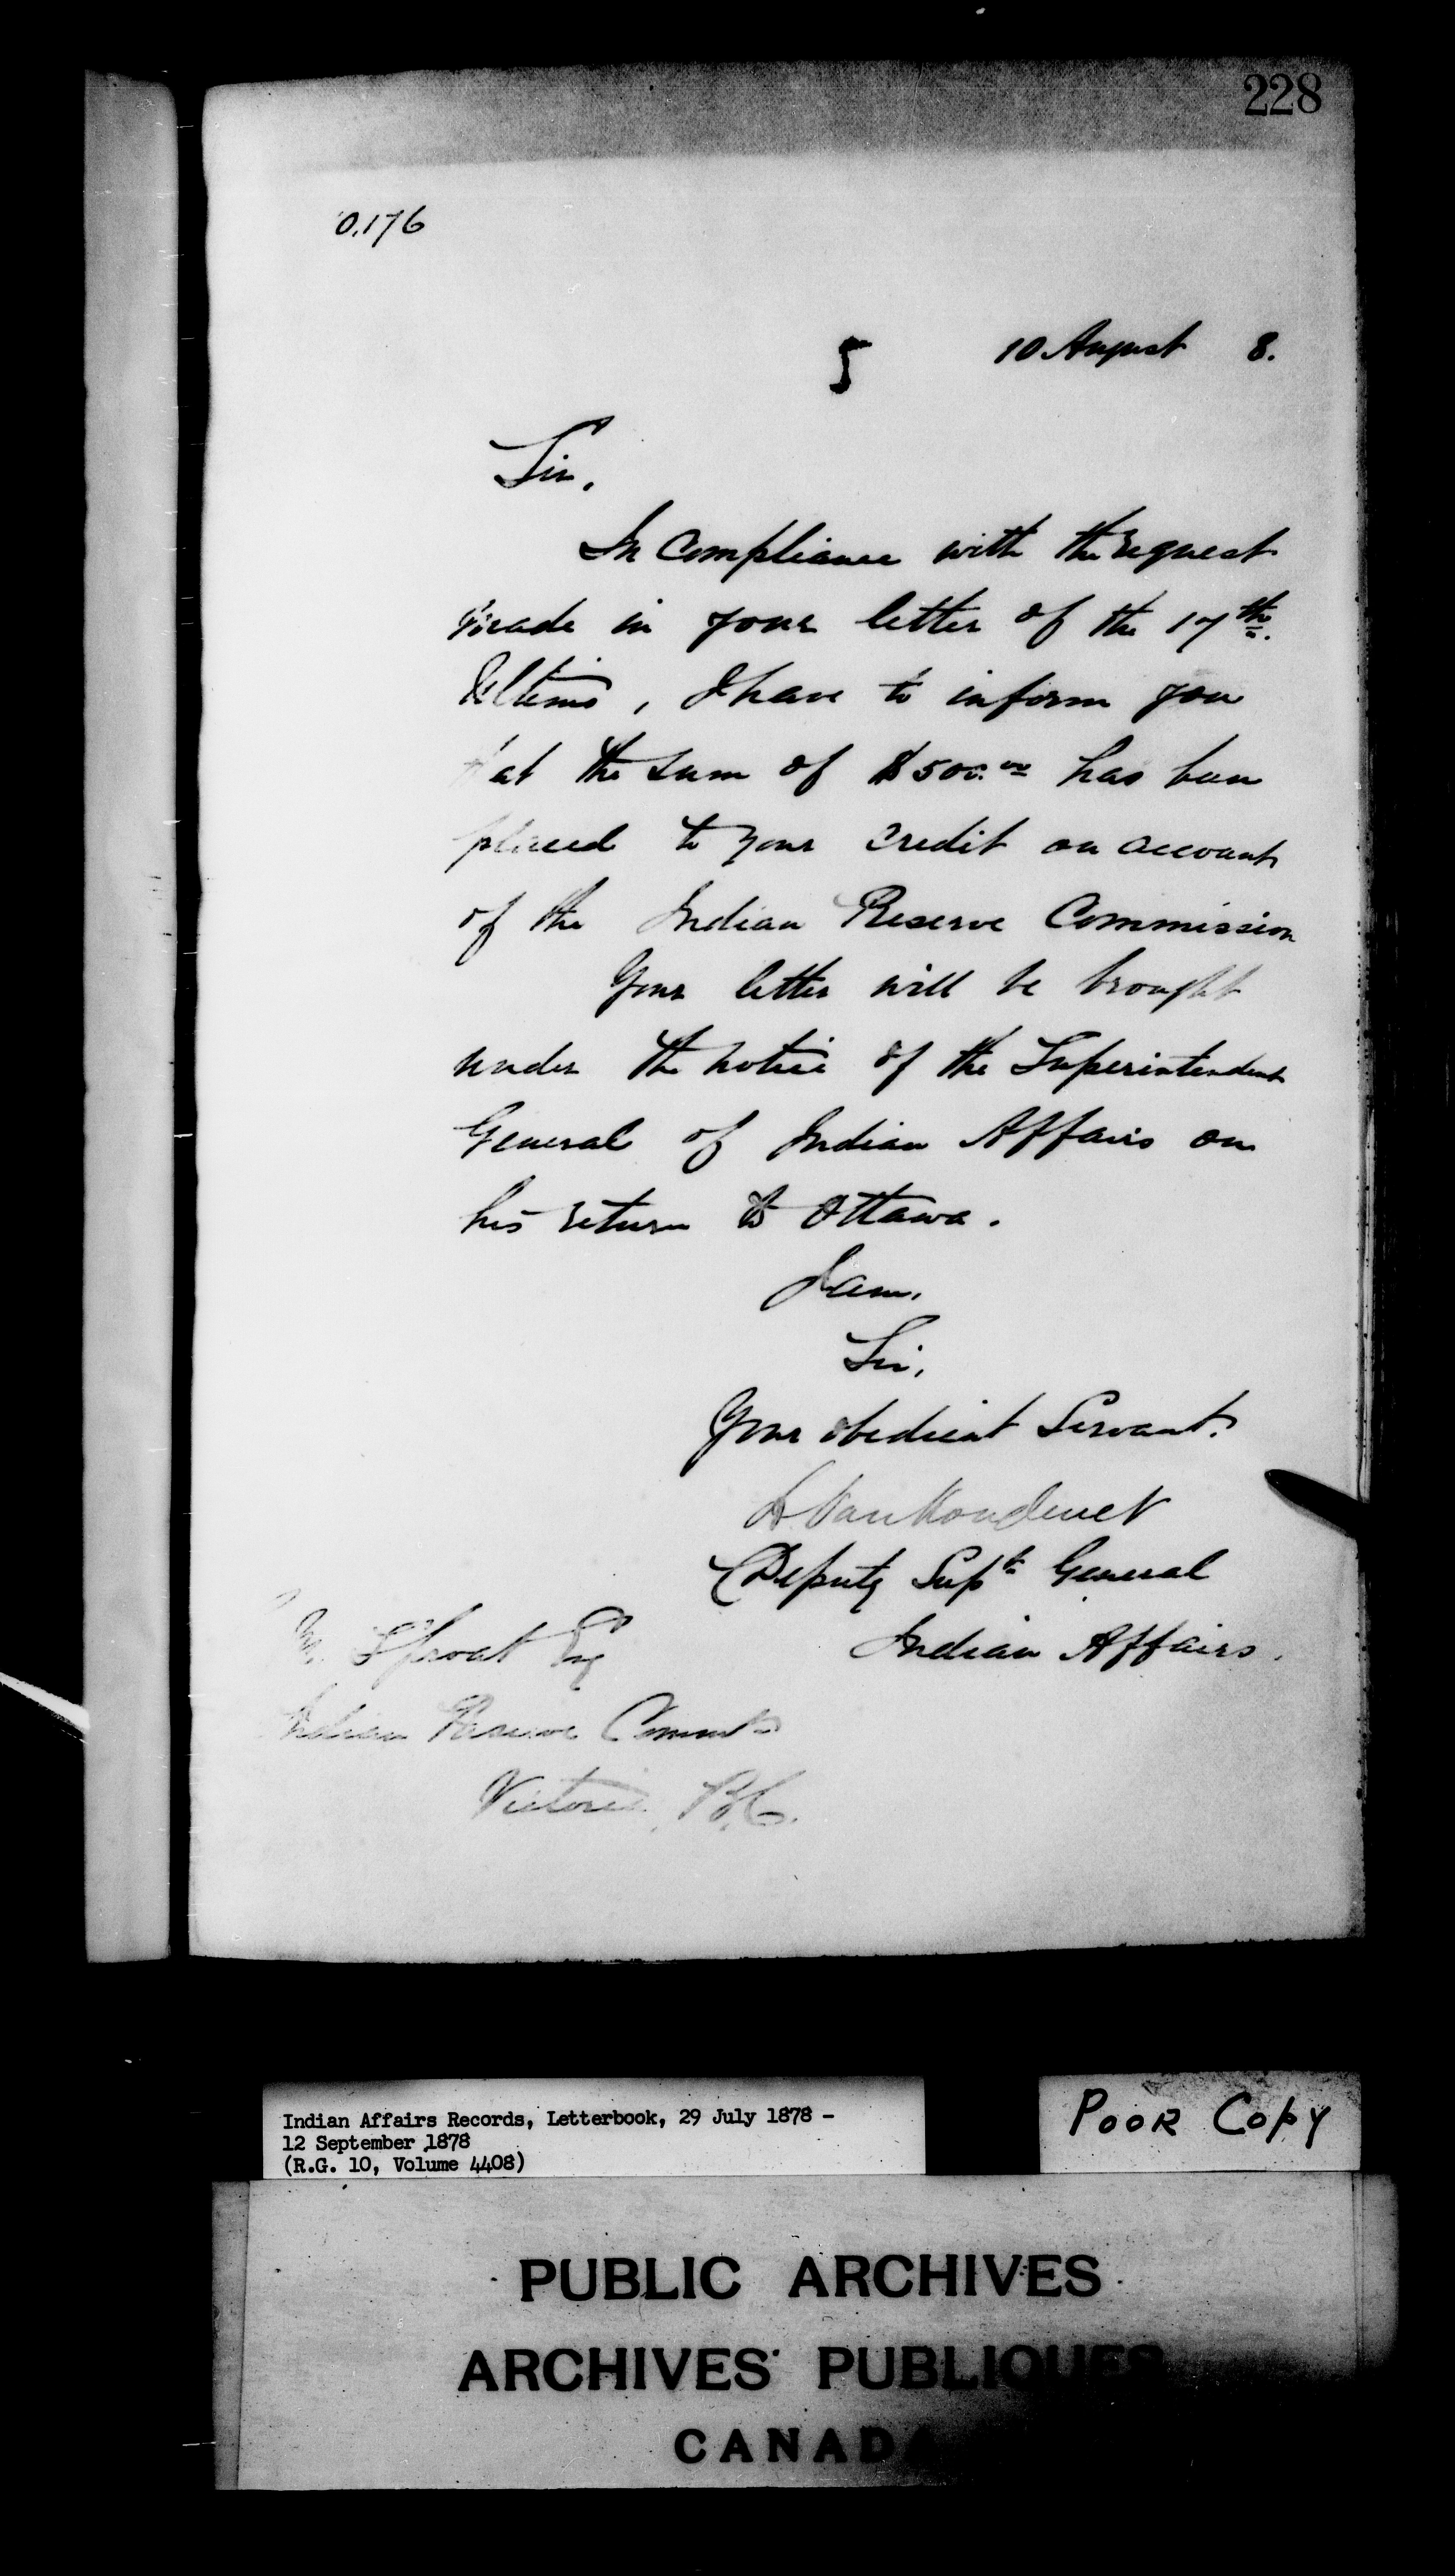 228
0.176
5 10 August 8.
Sir,
In compliance with the request
made in your letter of the 17th.
Ultimo, I have to inform you
that the sum of $500.00 has been
placed to your credit on account
of the Indian Reserve Commission
Your letter will be brought
under the notice of the Superintendent
General of Indian Affairs on
his return to Ottawa.
I am,
Sir,
Your obedient Servant.
L Vankoughnet
Deputy Supt General
Indian Affairs.
M. Sproat Esq
Indian Reserve Commr
Victoria, B.C.
Indian Affairs Records, Letterbook, 29 July 1878 -
12 September 1878
(R.G. 10, Volume 4408)
POOR COPY
PUBLIC ARCHIVES
ARCHIVES PUBLIQUES
CANADA